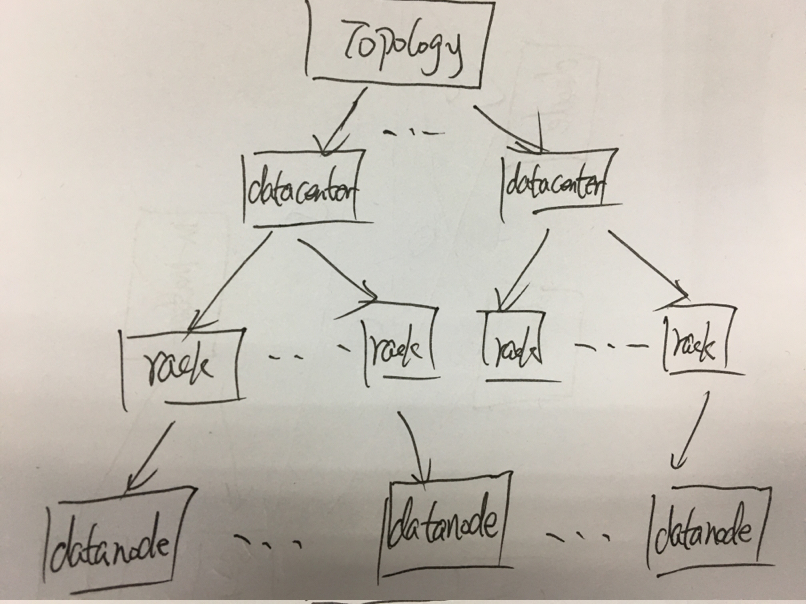 Topology
datacenter
datacenter
rack
rack
rack
rack
datanode
datanode
datanode